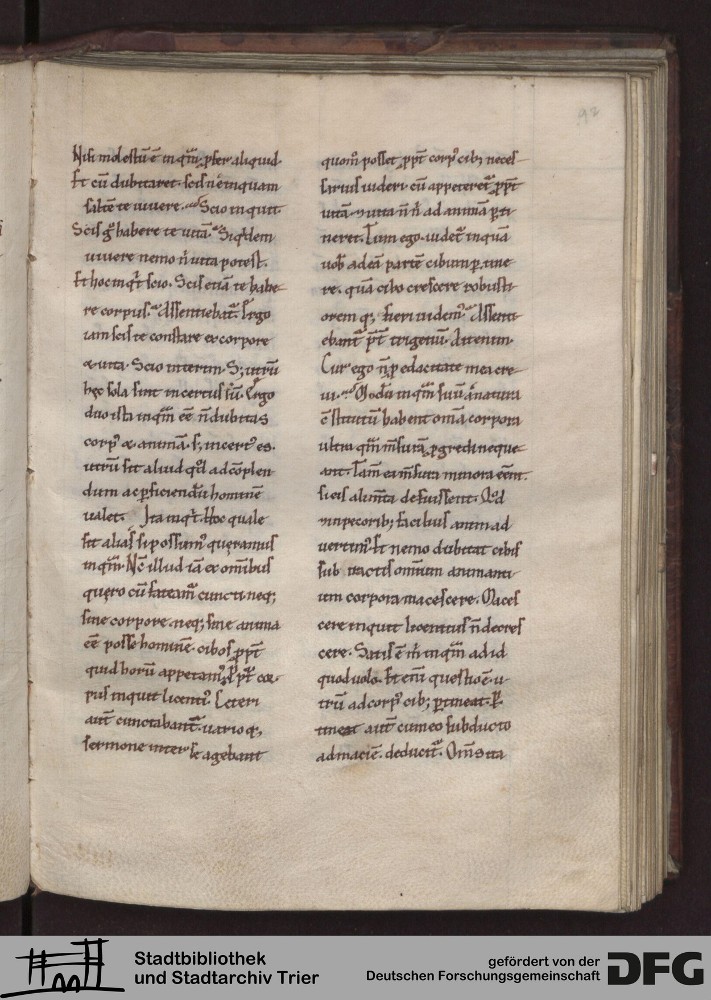 92
Nisi molestũ ẽ inquã pfer aliquid.
Et cũ dubitaret. scis ne inquam
saltẽ te uiuere. Scio inquit.
Scis g̃ habere te uitã. Siqdem
uiuere nemo ñ uita potest.
Et hoc inqt scio. Scis etiã te habe
re corpus. Assentiebat. Ergo
iam scis te constare ex corpore
& uita. Scio interim. S; utrũ
hęc sola sint incertus sũ. Ergo
duo ista inqm̃ eẽ ñ dubitas
corp & animã. s; incert es.
utrũ sit aliud qd ad cõplen
dum ac pficiendũ hominẽ
ualet. Ita inqt. Hoc quale
sit alias si possum queramus
inqm. Nc illud iã ex omĩbus
quęro cũ fateam cuncti neq;
sine corpore. neq; sine anima
eẽ posse hominẽ. cibos ppt
quid horũ appetam. ppt cor
pus inquit licenti. Ceteri
aut cunctabant. uario q;
sermone inter se agebant
quom posset ppt corp cib; neces
sarius uideri. cũ appeteret ppt
uitã. uita ñ ñ ad animã pti
neret. Tum ego. uidet inquã
uob ad eã partẽ cibum ptine
re. quã cibo crescere robusti
orem q; fieri uidem. Assenti
ebant pt trigetiũ. Ait enim.
Cur ego ñ p edacitate mea cre
ui. Modũ inqm suũ a natura
cstitutũ habent omĩa corpora
ultra quã mẽsurã pgredi neque
ant. Tam ea mẽsura minora eẽnt.
si eis alimta defuissent. Qd
in pecorib; facilius animad
uertim. Et nemo dubitat cibis
sub tractis omnium animanti
um corpora macescere. Maces
cere inquit licentius ñ decres
cere. Satis ẽ m inqm ad id
quod uolo. Et eni questio ẽ u
trũ ad corp cib; ptineat. P
tineat aut cum eo subducto
ad maciẽ deducit. Oms ita
Stadtbibliothek
und Stadtarchiv Trier
gefördert von der
Deutschen Forschungsgemeinschaft
DFG